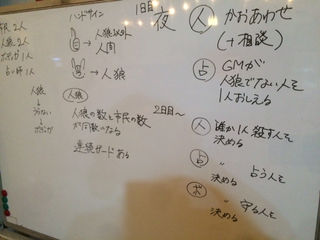 市民 2人
人狼 2人
ボディガ 1人
占い師 1人
人狼
占い
ボディガ
ハンドサイン
→ 人狼以外
人間
→ 人狼
人狼
人狼の数と市民の数
が同数になる
連続ガードある
1日目
夜
人 かおあわせ
(+相談)
占 GMが
人狼でない人を
1人おしえる
2日目〜
人 誰か1人殺す人を
決める
占 〃 占う人を
決める
ボ 〃 守る人を
決める